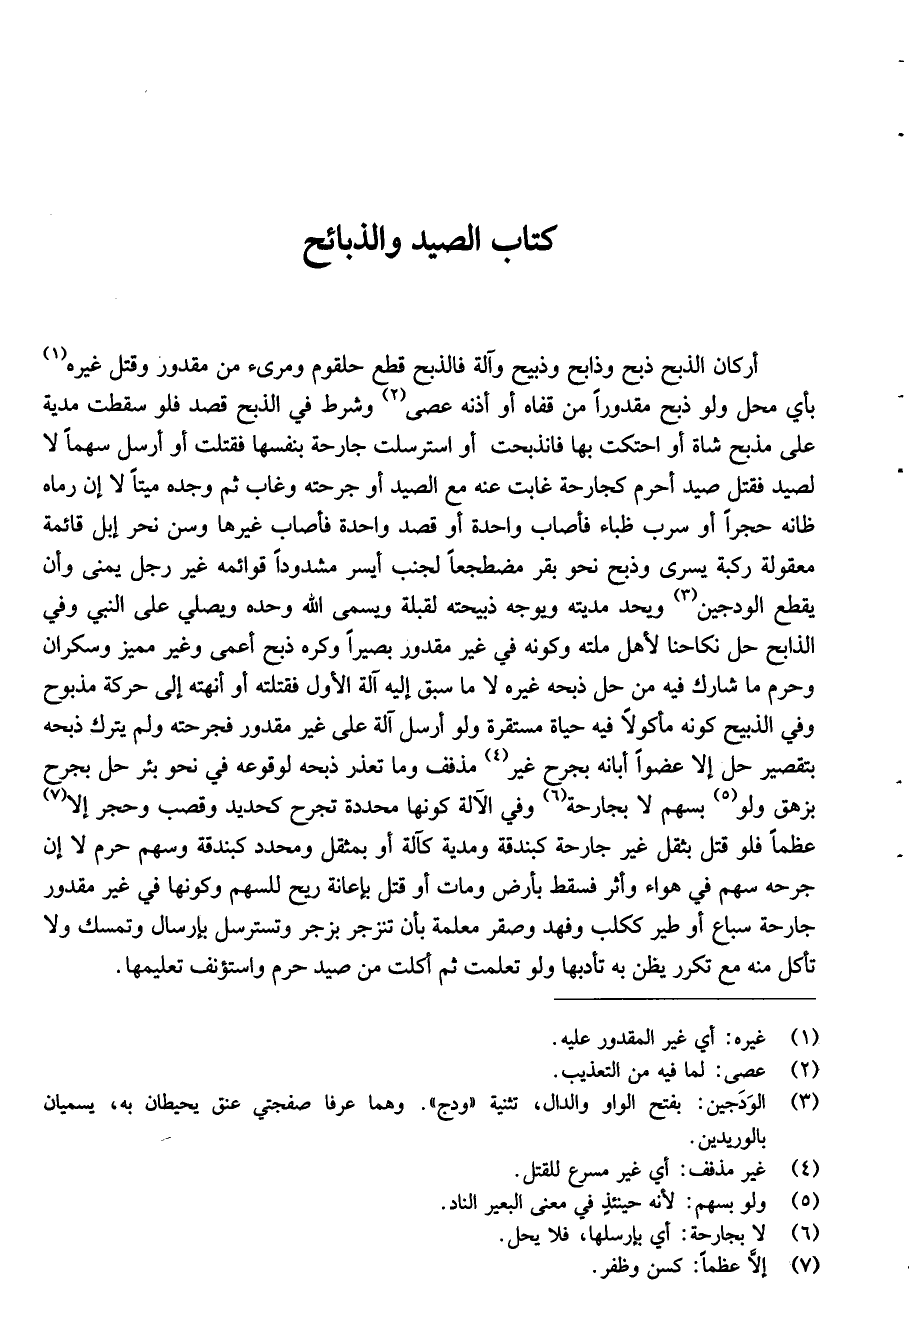 كتاب الصيد والذبائح
أركان الذبح ذبح وذابح وذبيح وآلة فالذبح قطع حلقوم ومرىء من مقدور وقتل غيره(١)
بأي محل ولو ذبح مقدوراً من قفاه أو أذنه عصى(٢) وشرط في الذبح قصد فلو سقطت مدية
على مذبح شاة أو احتكت بها فانذبحت أو استرسلت جارحة بنفسها فقتلت أو أرسل سهماً لا
لصيد فقتل صيد أحرم كجارحة غابت عنه مع الصيد أو جرحته وغاب ثم وجده ميتاً لا إن رماه
ظانه حجراً أو سرب ظباء فأصاب واحدة أو قصد واحدة فأصاب غيرها وسن نحر إبل قائمة
معقولة ركبة يسرى وذبح نحو بقر مضطجعاً لجنب أيسر مشدوداً قوائمه غير رجل يمنى وأن
يقطع الودجين(٣) ويحد مديته ويوجه ذبيحته لقبلة ويسمى الله وحده ويصلي على النبي وفي
الذابح حل نكاحنا لأهل ملته وكونه في غير مقدور بصيراً وكره ذبح أعمى وغير مميز وسكران
وحرم ما شارك فيه من حل ذبحه غيره لا ما سبق إليه آلة الأول فقتلته أو أنهته إلى حركة مذبوح
وفي الذبيح كونه مأكولاً فيه حياة مستقرة ولو أرسل آلة على غير مقدور فجرحته ولم يترك ذبحه
بتقصير حل إلا عضواً أبانه بجرح غير(٤) مذفف وما تعذر ذبحه لوقوعه في نحو بئر حل بجرح
بزهق ولو(٥) بسهم لا بجارحة(٦) وفي الآلة كونها محددة تجرح كحديد وقصب وحجر إلا(٧)
عظماً فلو قتل بثقل غير جارحة كبندقة ومدية كآلة أو بمثقل ومحدد كبندقة وسهم حرم لا إن
جرحه سهم في هواء وأثر فسقط بأرض ومات أو قتل بإعانة ريح للسهم وكونها في غير مقدور
جارحة سباع أو طير ككلب وفهد وصقر معلمة بأن تنزجر بزجر وتسترسل بإرسال وتمسك ولا
تأكل منه مع تكرر يظن به تأدبها ولو تعلمت ثم أكلت من صيد حرم واستؤنف تعليمها.
(١) غيره: أي غير المقدور عليه.
(٢) عصى: لما فيه من التعذيب.
(٣) الوَدَجين: بفتح الواو والدال، تثنية «ودج». وهما عرفا صفحتي عنق يحيطان به، يسميان
بالوريدين.
(٤) غير مذفف: أي غير مسرع للقتل.
(٥) ولو بسهم: لأنه حينئذٍ في معنى البعير الناد.
(٦) لا بجارحة: أي بإرسلها، فلا يحل.
(٧) إلاَّ عظماً: كسن وظفر.